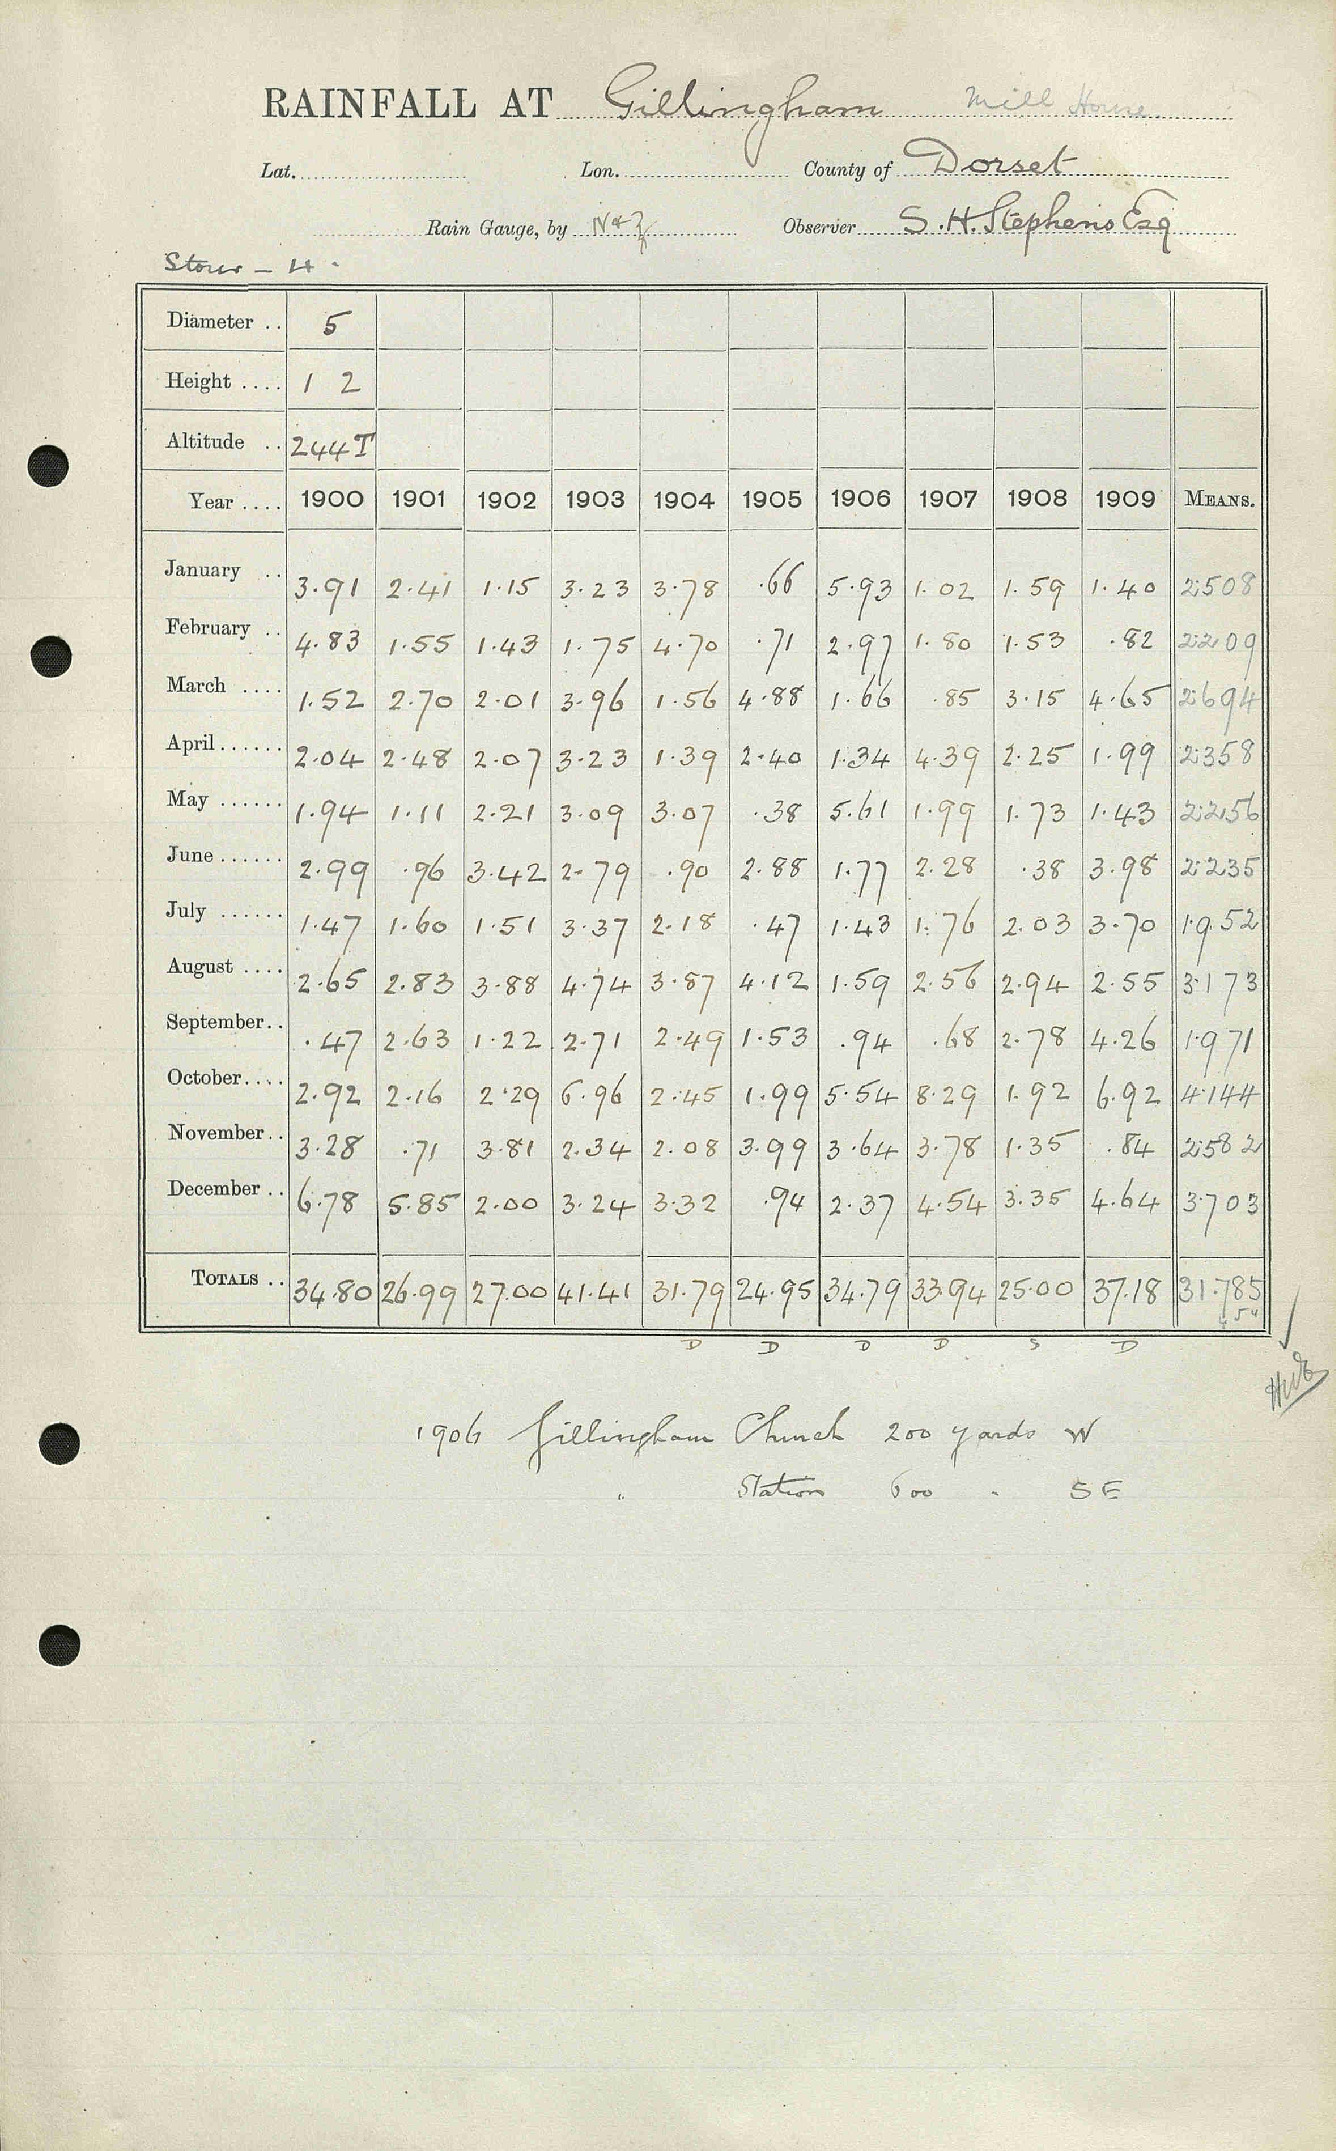 RAINFALL AT Gillingham Mill House
Lat. Lon. County of Dorset
Rain Gauge, by N & Z Observer S. H. Stephens Esq
Stour - 4.
Diameter .. 5
Height .... 1 2
Altitude .. 244T
Year .... 1900 1901 1902 1903 1904 1905 1906 1907 1908 1909 MEANS.
January .. 3.91 2.41 1.15 3.23 3.78 .66 5.93 1.02 1.59 1.40 2.508
February .. 4.83 1.55 1.43 1.75 4.70 .71 2.97 1.80 1.53 .82 2.209
March .... 1.52 2.70 2.01 3.96 1.56 4.88 1.66 .85 3.15 4.65 2.694
April ...... 2.04 2.48 2.07 3.23 1.39 2.40 1.34 4.39 2.25 1.99 2.358
May ...... 1.94 1.11 2.21 3.09 3.07 .38 5.61 1.99 1.73 1.43 2.256
June ...... 2.99 .96 3.42 2.79 .90 2.88 1.77 2.28 .38 3.98 2.235
July ...... 1.47 1.60 1.51 3.37 2.18 .47 1.43 1.76 2.03 3.70 1.952
August .... 2.65 2.83 3.88 4.74 3.87 4.12 1.59 2.56 2.94 2.55 3.173
September .. .47 2.63 1.22 2.71 2.49 1.53 .94 .68 2.78 4.26 1.971
October .... 2.92 2.16 2.29 6.96 2.45 1.99 5.54 8.29 1.92 6.92 4.144
November .. 3.28 .71 3.81 2.34 2.08 3.99 3.64 3.78 1.35 .84 2.582
December .. 6.78 5.85 2.00 3.24 3.32 .94 2.37 4.54 3.35 4.64 3.703
TOTALS .. 34.80 26.99 27.00 41.41 31.79 24.95 34.79 33.94 25.00 37.18 31.785
D D D D S D
1906 Gillingham Church 200 yards W
" Station 600 " SE